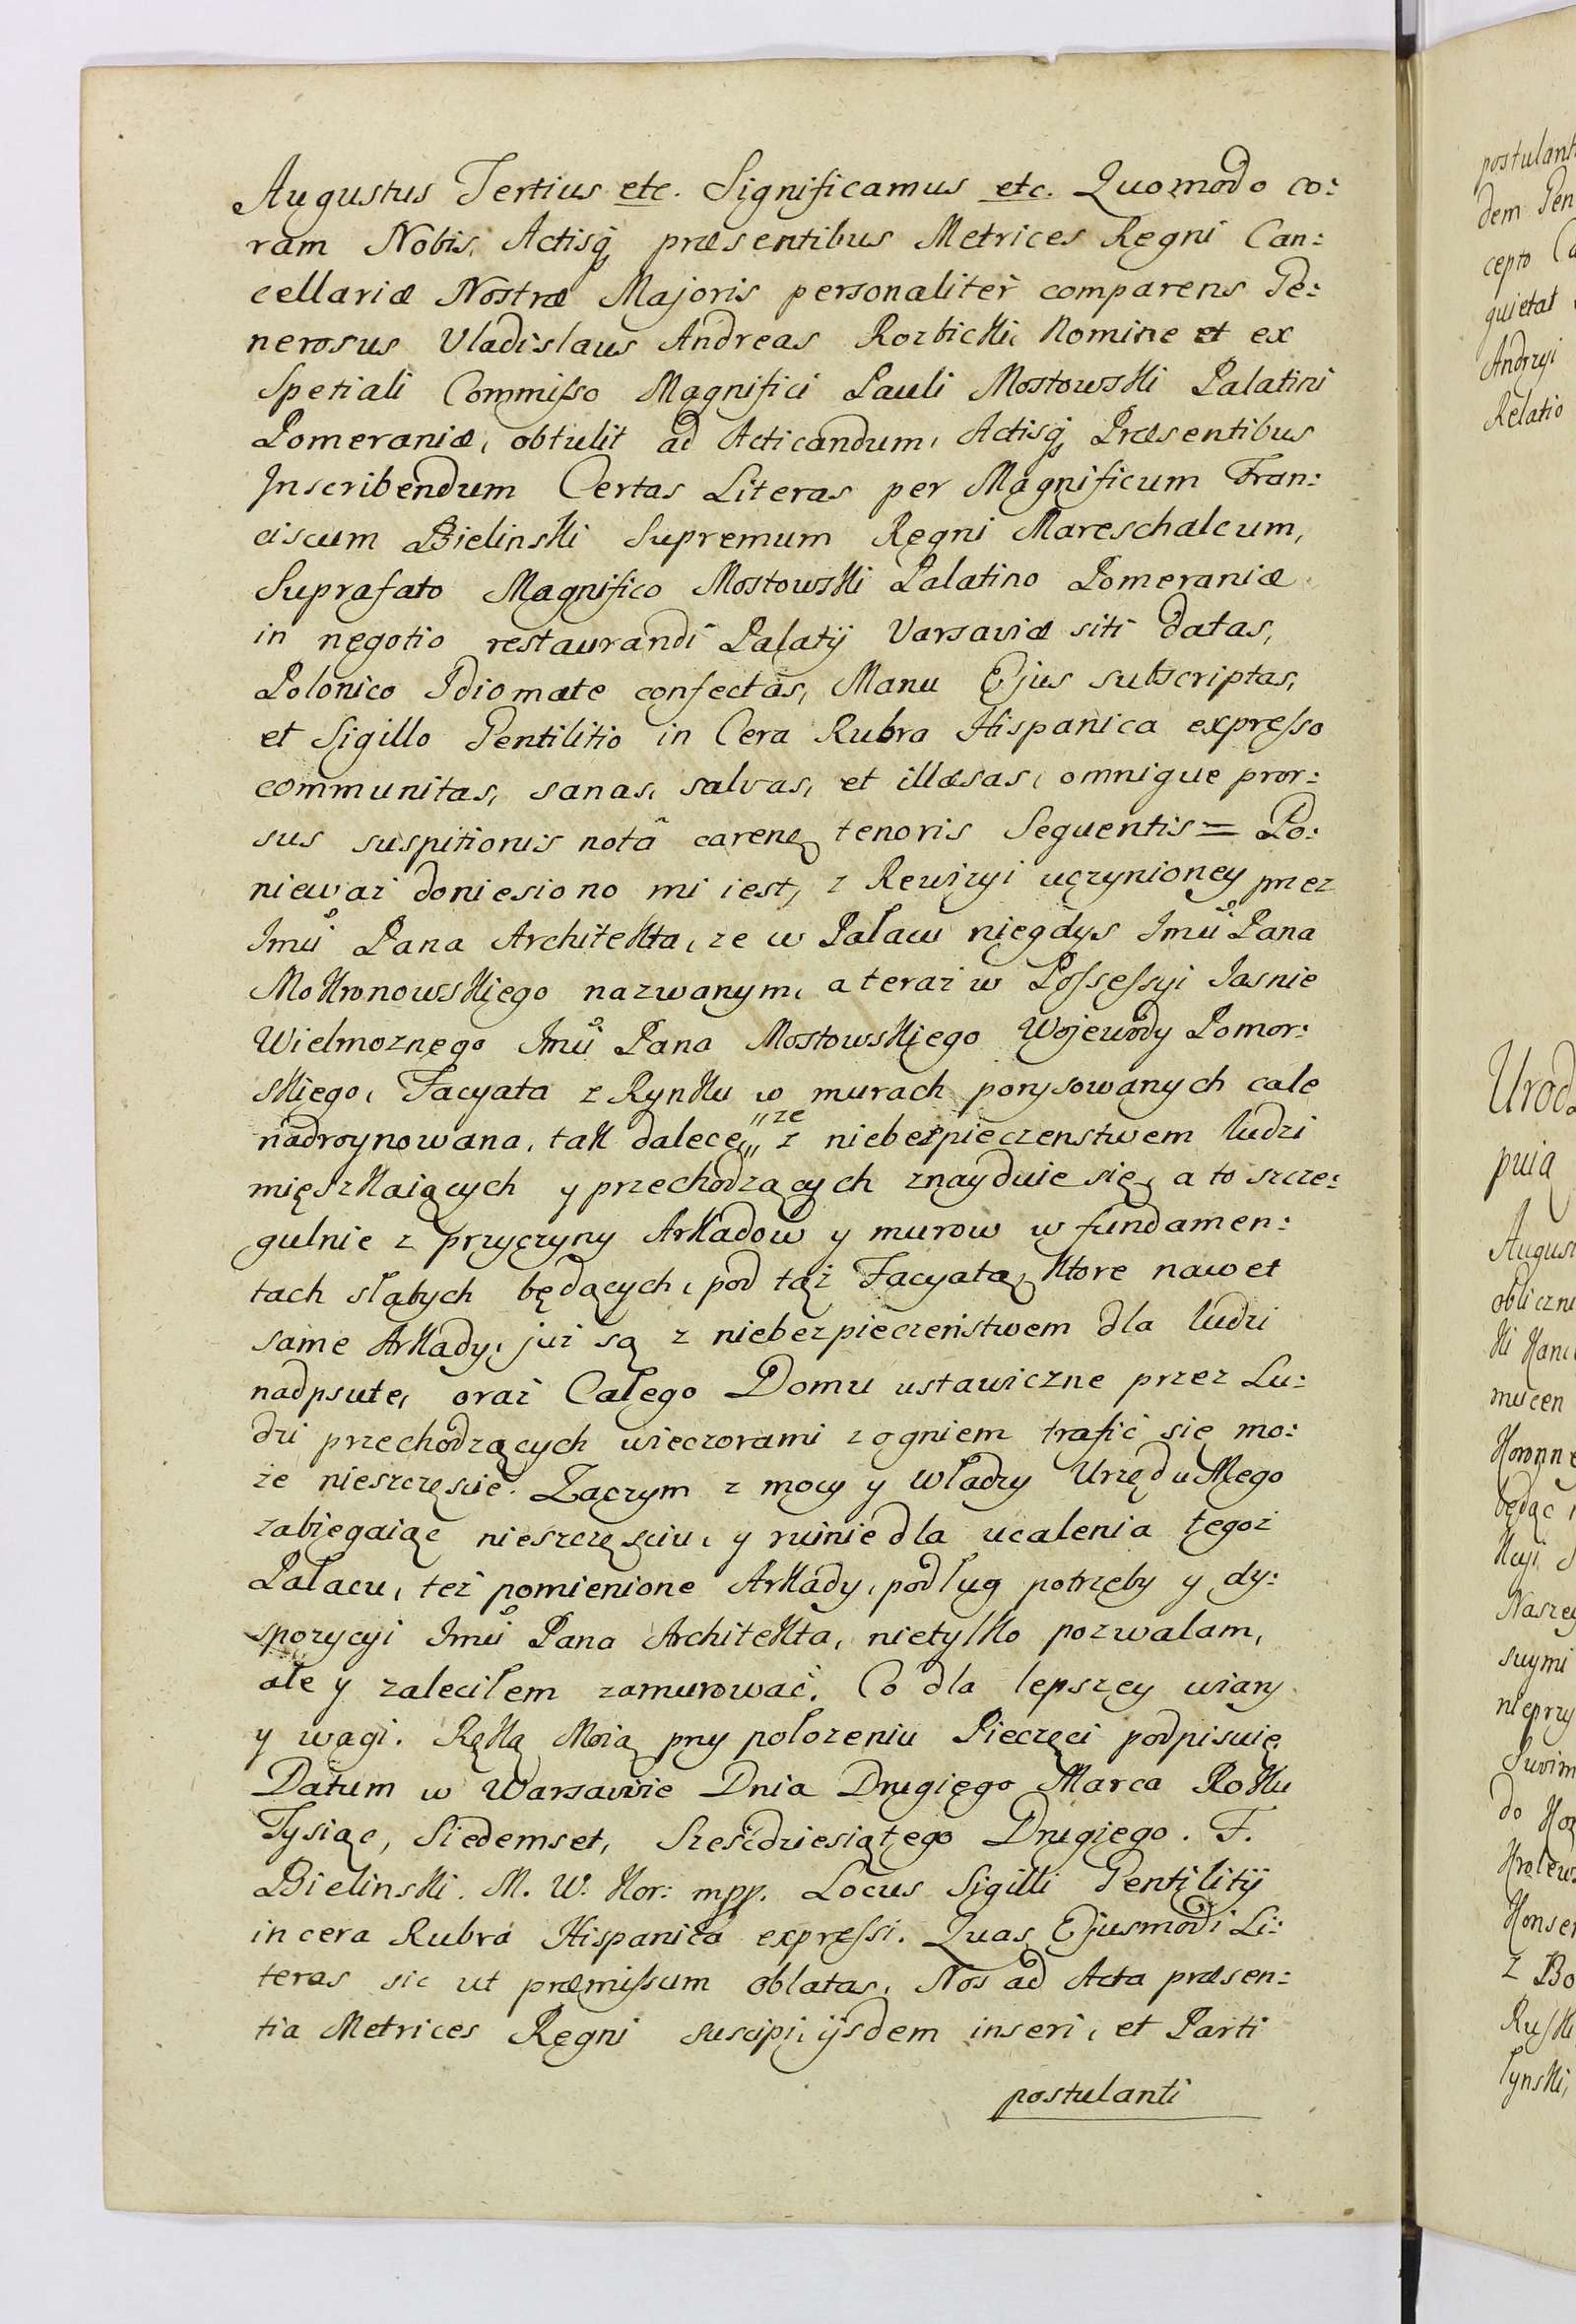 Augustus Tertius etc. Significamus etc. Quomodo co:
ram Nobis, Actisq₃ præsentibus Metrices Regni Can:
cellariæ Nostræ Majoris personaliter comparens Ge:
nerosus Vladislaus Andreas Rozbicki, Nomine et ex
Spetiali Commisso Magnifici Pauli Mostowski Palatini
Pomeraniæ, obtulit ad Acticandum, Actisq₃ Præsentibus
Inscribendum Certas Literas per Magnificum Fran:
ciscum Bielinski Supremum Regni Mareschalcum,
Suprafato Magnifico Mostowski Palatino Pomeraniæ
in negotio restaurandi Palatij Varsaviæ siti datas,
Polonico Idiomate confectas, Manu Ejus subscriptas,
et Sigillo Gentilitio in Cera Rubra Hispanica expresso
communitas, sanas, salvas, et illæsas, omnique pror:
sus suspitionis notâ caren₃ tenoris Sequentis = Po:
nieważ doniesiono mi iest, z Rewizyi uczynioney przez
Imci Pana Architekta, ze w Pałacu niegdys Imci Pana
Mokronowskiego nazwanym, a teraz w Possessyi Jasnie
Wielmoznego Imci Pana Mostowskiego Wojewody Pomor:
skiego, Facyata z Rynku w murach porysowanych cale
nadroynowana, tak dalece, ze z niebezpieczenstwem ludzi
mięszkaiących y przechodzących znayduie się, a to szcze:
gulnie z przyczyny Arkadow y murow w fundamen:
tach słabych będących, pod tąż Facyatą, ktore nawet
same Arkady, już są z niebezpieczeństwem dla ludzi
nadpsute, oraz Całego Domu ustawiczne przez Lu:
dzi przechodzących wieczorami z ogniem trafić się mo:
że nieszczęscie. Zaczym z mocy y władzy Urzędu Mego
zabiegaiąc nieszczęsciu, y ruinie dla ucalenia tegoż
Pałacu, też pomienione Arkady, podług potrzeby y dy:
spozycyi Imci Pana Architekta, nietylko pozwalam,
ale y zaleciłem zamurować. Co dla lepszey wiary
y wagi. Ręką Moią przy położeniu Pieczęci podpisuię
Datum w Warszawie Dnia Drugiego Marca Roku
Tysiąc, Siedemset, Sześćdziesiątego Drugiego. F.
Bielinski. M. W. Kor: mpp. Locus Sigilli Gentilitij
in cera Rubra Hispanica expressi. Quas Ejusmodi Li:
teras sic ut præmissum oblatas, Nos ad Acta præsen:
tia Metrices Regni suscipi, ijsdem inseri, et Parti
postulanti
postulant
dem Gen
cepto Ca
quietat
Andrzyi
Relatio
Urodz
puią
August
obliczni
ki Kanc
mucen
Koronne
będąc
Naszey
suymi
nieprzy
do Ko
Krolews
Konser
z Bo